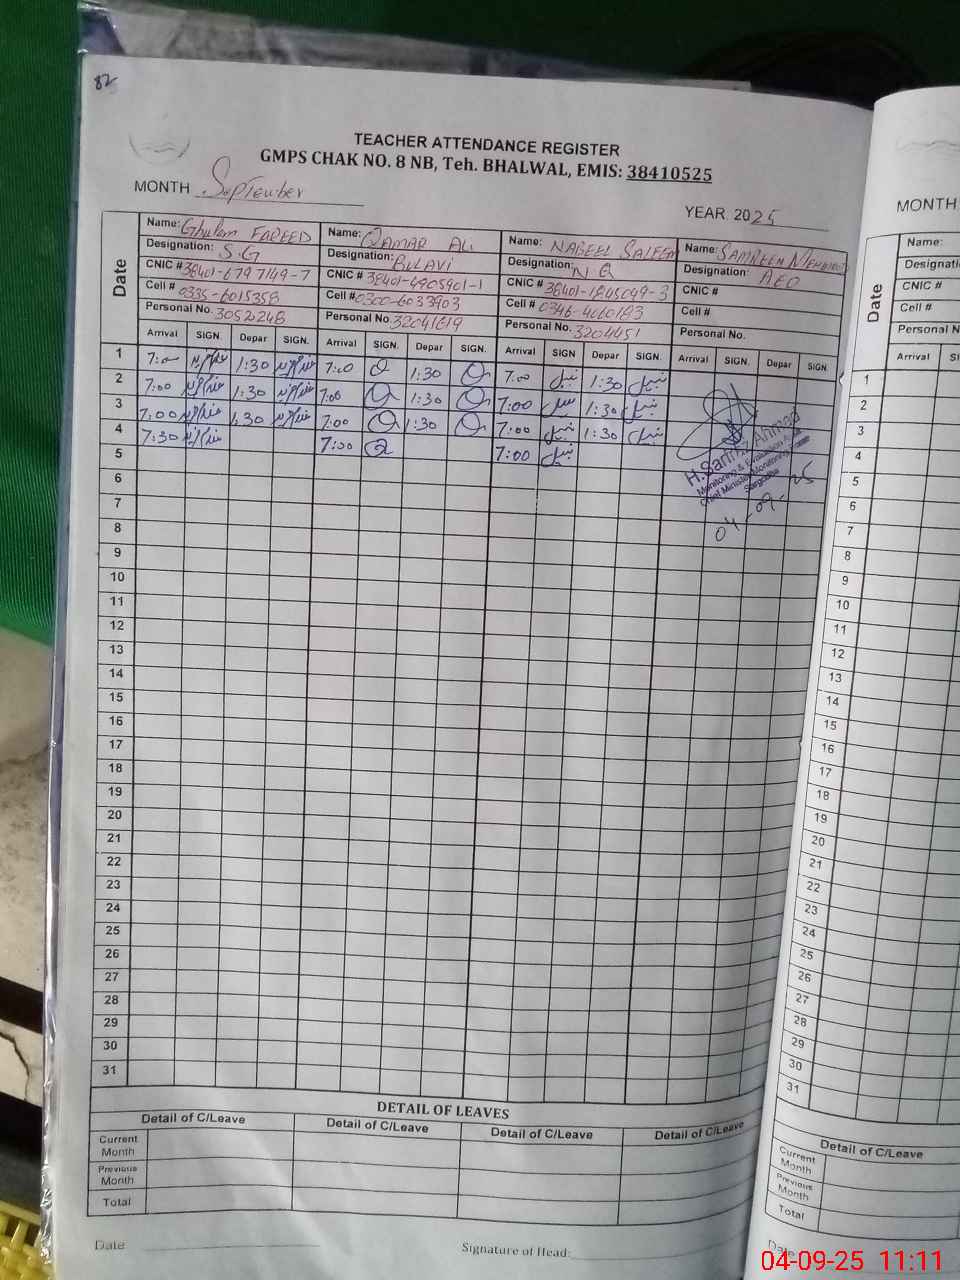 82
TEACHER ATTENDANCE REGISTER
GMPS CHAK NO. 8 NB, Teh. BHALWAL, EMIS: 38410525
MONTH September
YEAR 2025
MONTH
Date
Name: Ghulam FAREED
Designation: S.G
CNIC # 38401-6797149-7
Cell # 0335-6015358
Personal No. 3052248
Name: QAMAR ALI
Designation:
CNIC # 38401-4905901-1
Cell # 0300-6033903
Personal No. 32041619
Name: NABEEL SALEEM
Designation: N Q
CNIC #
Cell #
Personal No. 3204451
Name: SAMREEN
Designation: AEO
CNIC #
Cell #
Personal No.
Date
Name:
CNIC #
Cell #
Arrival SIGN. Depar SIGN. Arrival SIGN. Depar SIGN. Arrival SIGN Depar SIGN. Arrival SIGN. Depar SIGN.
Arrival
1 7:00 1:30 7:00 1:30 7:00 نبیل 1:30 نبیل
2 7:00 1:30 7:00 1:30 7:00 نبیل 1:30 نبیل
3 7:00 1:30 7:00 1:30 7:00 نبیل 1:30 نبیل
4 7:30 7:00 7:00 نبیل
5
6
7
8
9
10
11
12
13
14
15
16
17
18
19
20
21
22
23
24
25
26
27
28
29
30
31
Ahmad
Monitoring & Evaluation
Chief Minister Monitoring
Sargodha
04-09-25
1
2
3
4
5
6
7
8
9
10
11
12
13
14
15
16
17
18
19
20
21
22
23
24
25
26
27
28
29
30
31
DETAIL OF LEAVES
Detail of C/Leave Detail of C/Leave Detail of C/Leave Detail of C/Leave
Current Month
Previous Month
Total
Date
Signature of Head:
Detail of C/Leave
Current Month
Previous Month
Total
Date
04-09-25 11:11